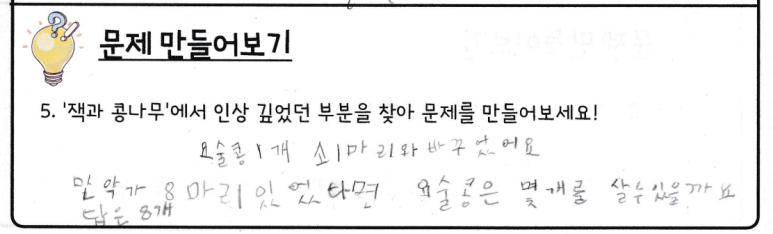 문제 만들어보기
5. '잭과 콩나무'에서 인상 깊었던 부분을 찾아 문제를 만들어보세요!
요술콩 1개 소1마리와 바꾸었어요
만약가 8마리있었다면 요술콩은 몇개를 살수있을까요
답은 8개